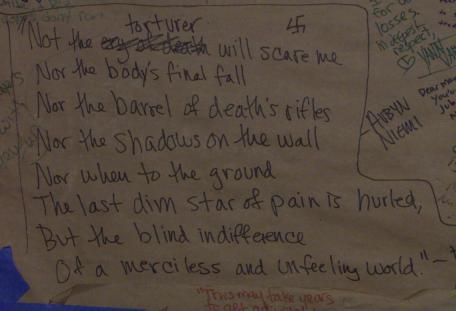 torturer
"Not the will scare me
Nor the body's final fall
Nor the barrel of death's rifles
Nor the shadows on the wall
Nor when to the ground
The last dim star of pain is hurled,
But the blind indifference
Of a merciless and unfeeling world." –
losses.
respect,
AUBYN
NIEMI
Dear
"This may take years